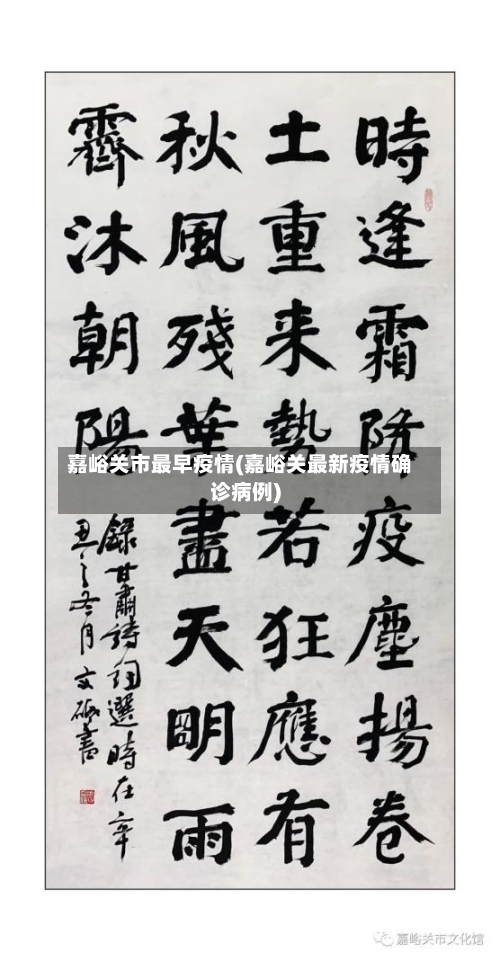 時逢霜降疫塵揚卷
土重来勢若狂應有
秋風殘葉盡天明雨
霽沐朝陽
録甘肅詩詞選時在辛
丑之冬月文砚書
嘉峪关市最早疫情(嘉峪关最新疫情确
诊病例)
嘉峪关市文化馆